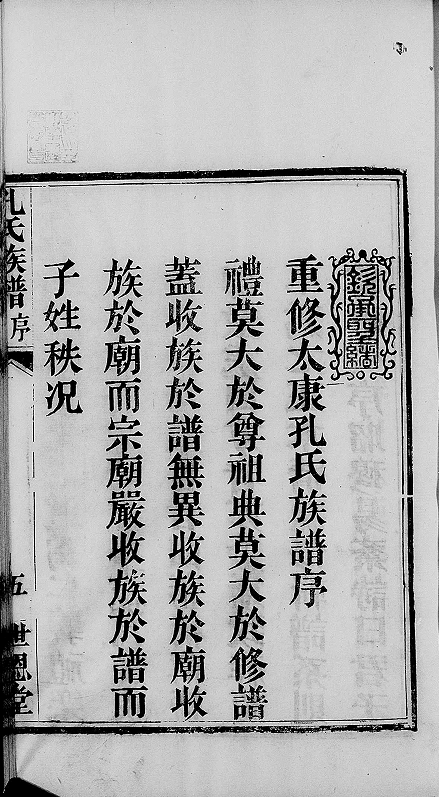 重修太康孔氏族譜序
禮莫大於尊祖典莫大於修譜
蓋收族於譜無異收族於廟收
族於廟而宗廟嚴收族於譜而
子姓秩況
孔氏族譜序
五 世恩堂